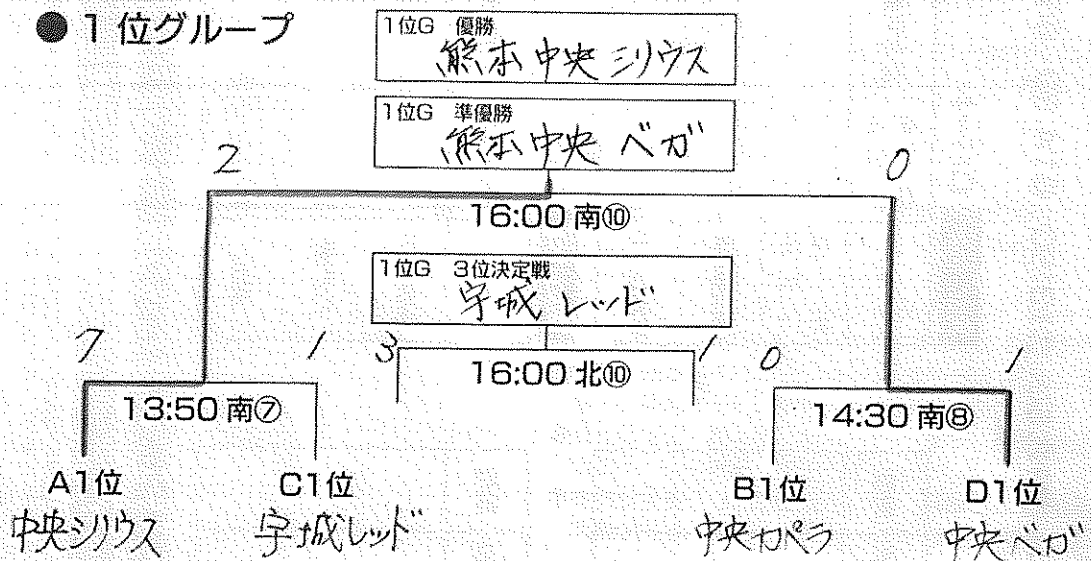 ●1位グループ
1位G 優勝
熊本中央 シリウス
1位G 準優勝
熊本中央 ベガ
2 0
16:00 南⑩
1位G 3位決定戦
宇城 レッド
7 1 3 1 0 1
16:00 北⑩
13:50 南⑦ 14:30 南⑧
A1位 C1位 B1位 D1位
中央シリウス 宇城レッド 中央カペラ 中央ベガ